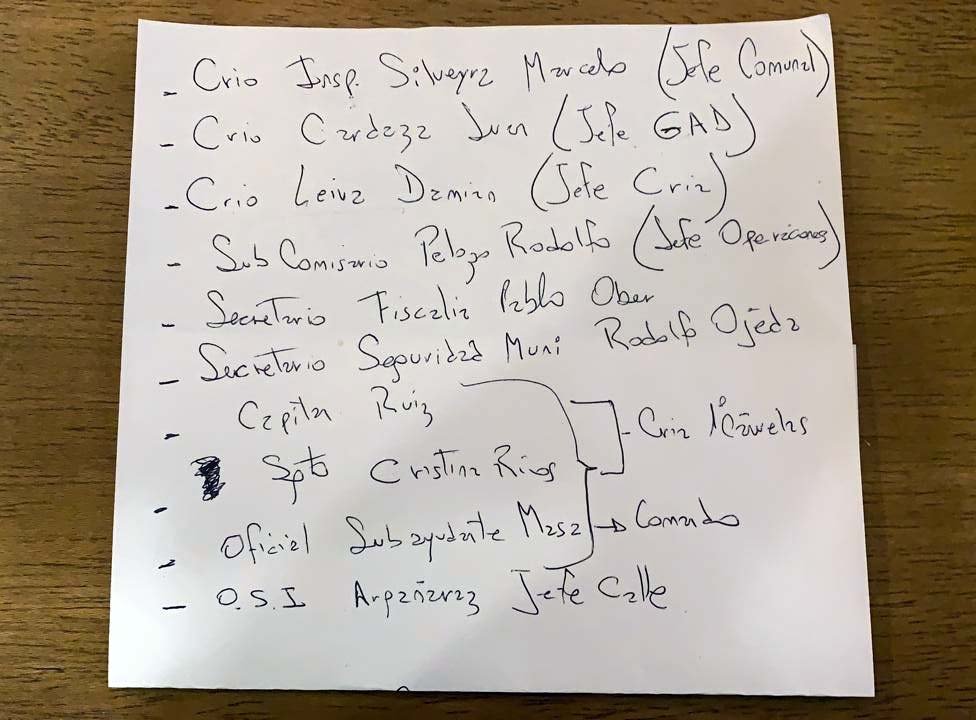 - Crio Insp. Silveyra Marcelo (Jefe Comunal)
- Crio Cardozo Juan (Jefe GAD)
- Crio Leiva Damian (Jefe Cria)
- Sub Comisario Pelozo Rodolfo (Jefe Operaciones)
- Secretario Fiscalia Pablo Ober
- Secretario Seguridad Muni Rodolfo Ojeda
- Capitan Ruiz
- Sgto Cristina Rios
Cria 1º
- Oficial Subayudante Masa → Comando
- O.S.I Argañaraz Jefe Calle